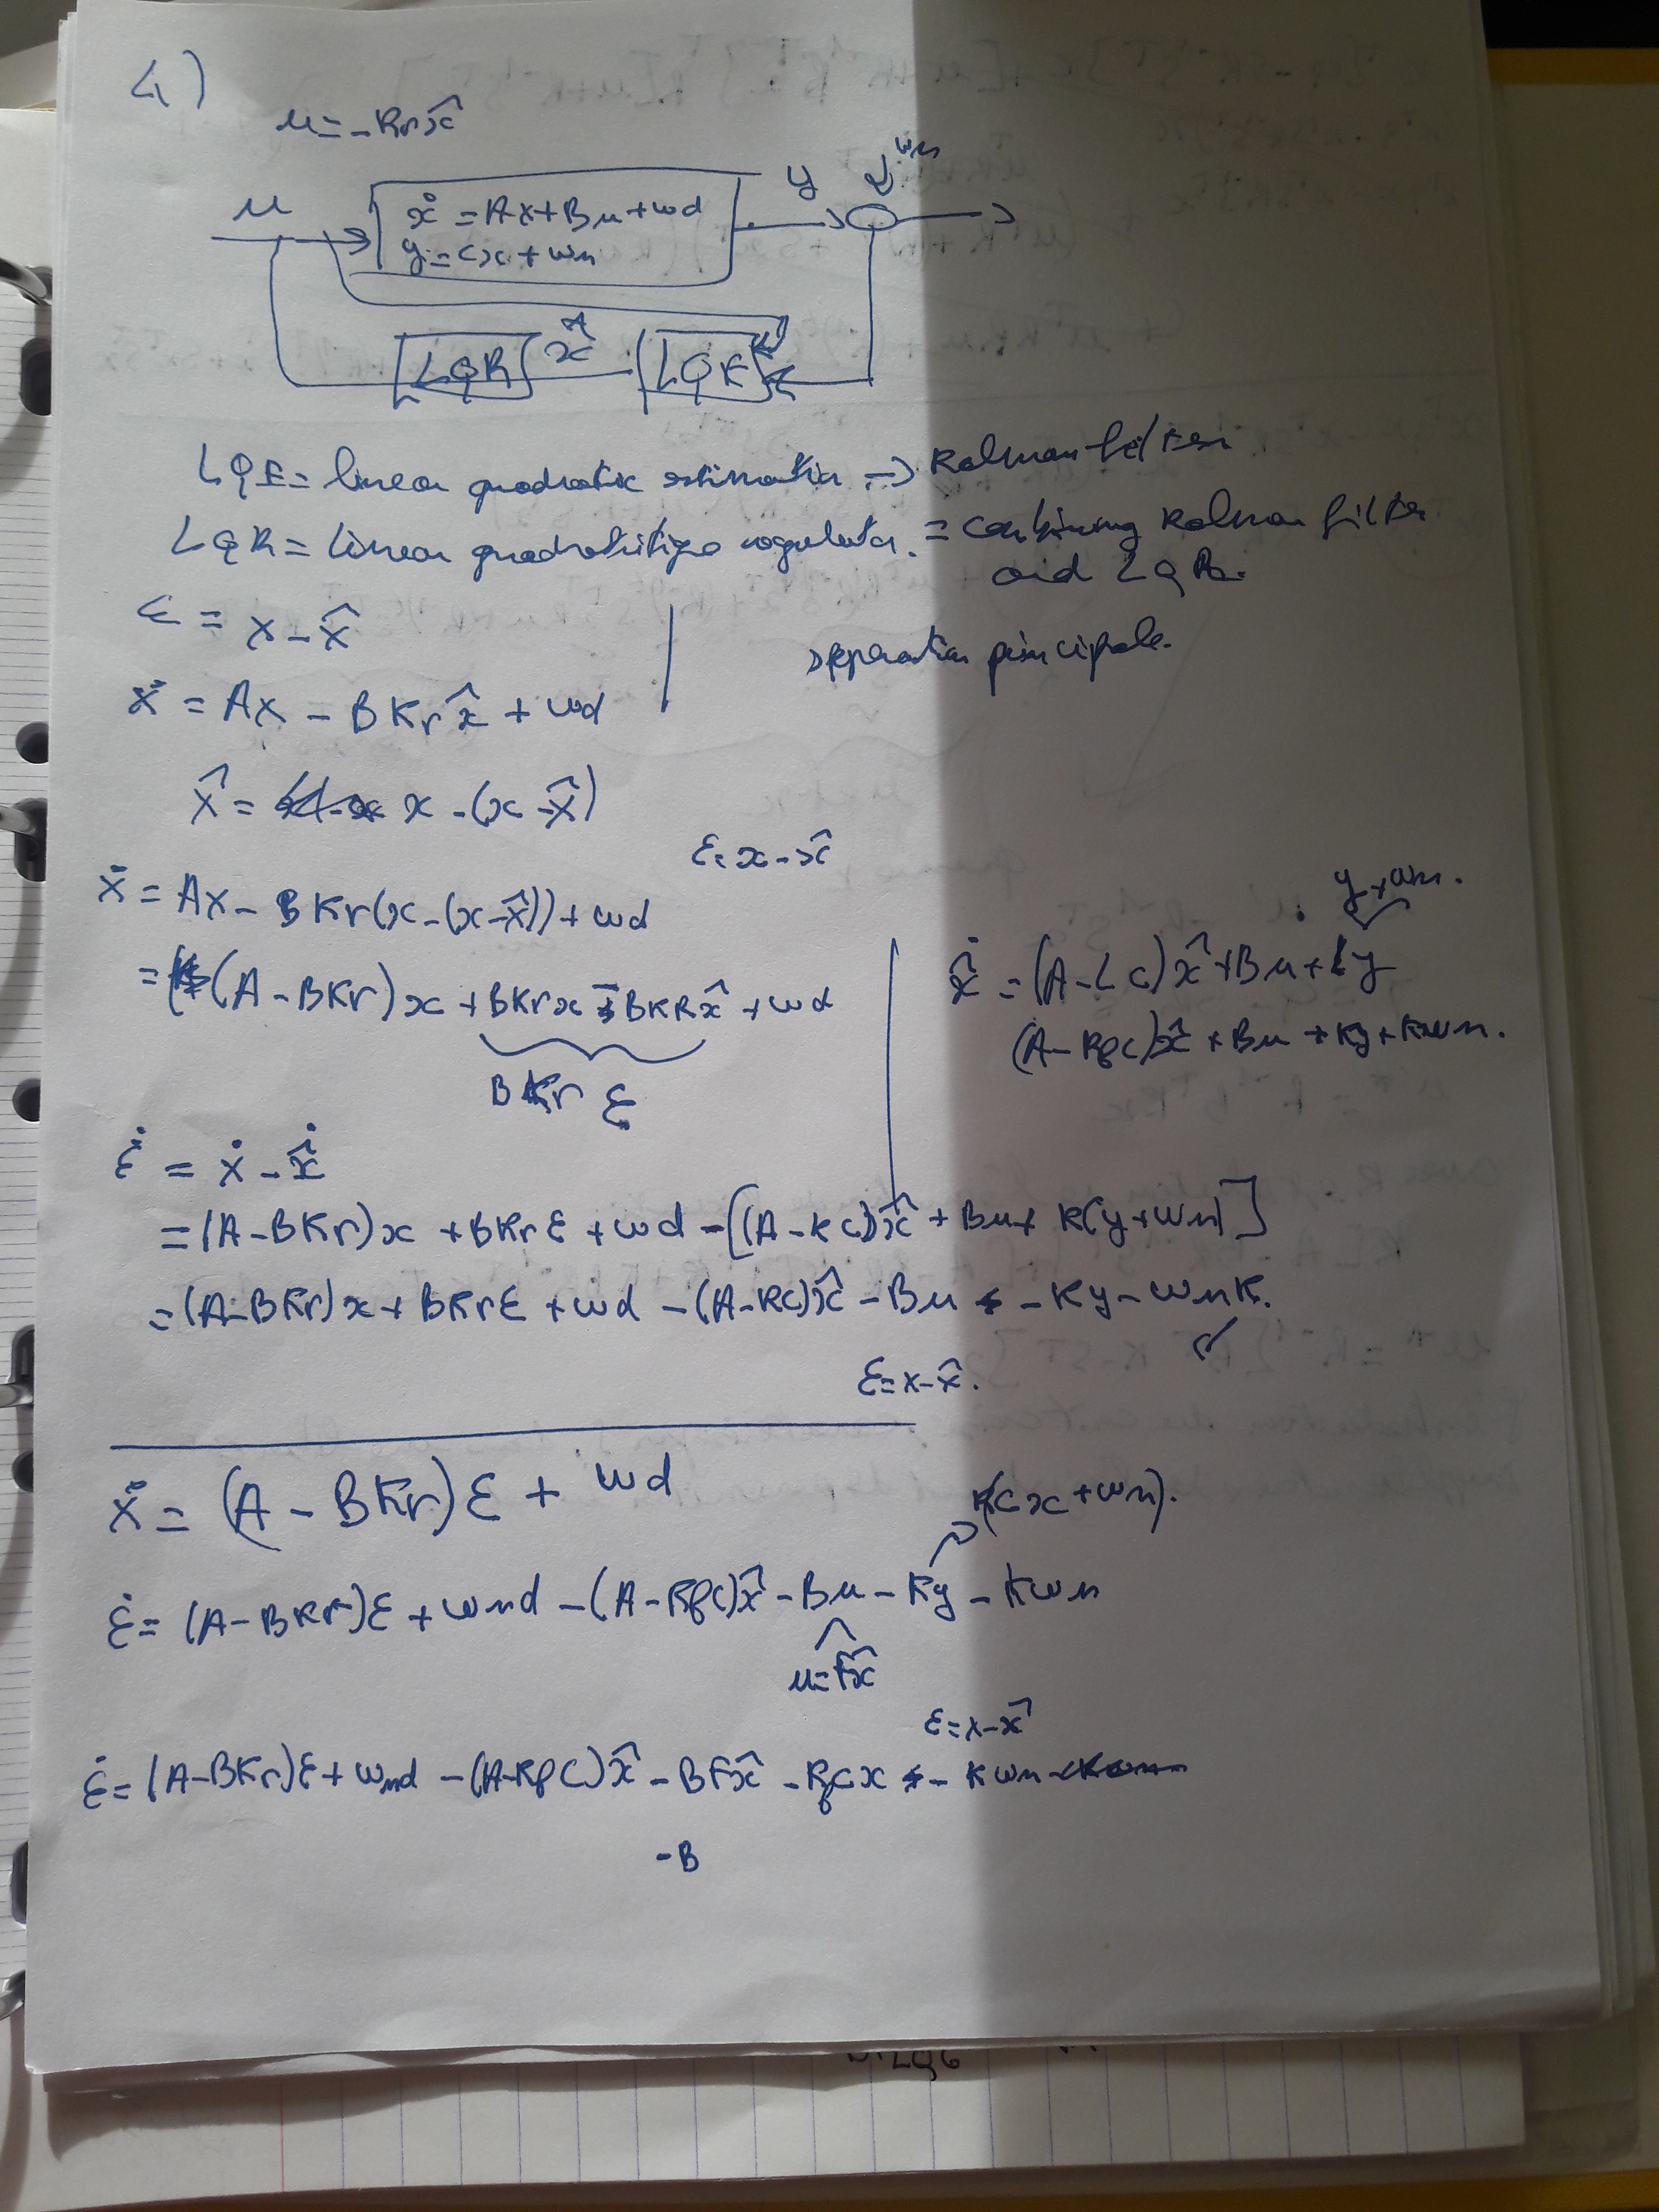 4)
u = -Kr x̂
u
ẋ = Ax + Bu + wd
y = Cx + wn
y
wn
LQR
x̂
LQE
LQE = linear quadratic estimation → Kalman filter
LQR = linear regulator. = combining Kalman filter
and LQR.
ε = x - x̂
separation principale.
ẋ = Ax - BKr x̂ + wd
x̂ = x - (x - x̂)
ε = x - x̂
ẋ = Ax - BKr(x - (x - x̂)) + wd
y + wn.
= (A - BKr)x + BKrx - BKR x̂ + wd
BKr ε
x̂̇ = (A - LC)x̂ + Bu + Ly
(A - KfC)x̂ + Bu + Ky + Kwn.
ε̇ = ẋ - x̂̇
= (A - BKr)x + BKrε + wd - [(A - KC)x̂ + Bu + K(y + wn)]
= (A - BKr)x + BKrε + wd - (A - KC)x̂ - Bu - Ky - wnK.
ε = x - x̂.
ẋ = (A - BKr)ε + wd
K(Cx + wn).
ε̇ = (A - BKr)ε + wnd - (A - KfC)x̂ - Bu - Ky - Kwn
u = Fx̂
ε = x - x̂
ε̇ = (A - BKr)ε + wnd - (A - KfC)x̂ - BFx̂ - KfCx - Kwn
-B
LQG